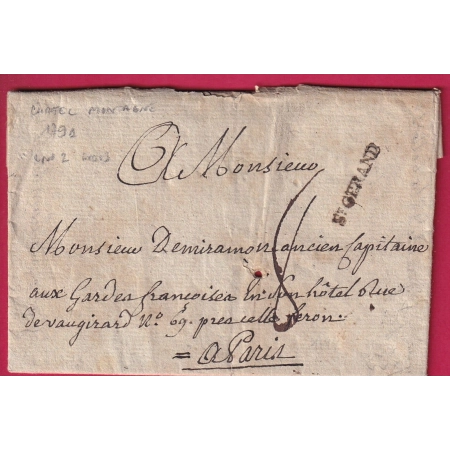 CHATEL MONTAGNE
1790
A Monsieur
ST GERAND
8
Monsieur Demiramon ancien Capitaine
aux Gardes françoises En Son hôtel Rue
de vaugirard N.° 69. pres celle feron.
= a Paris